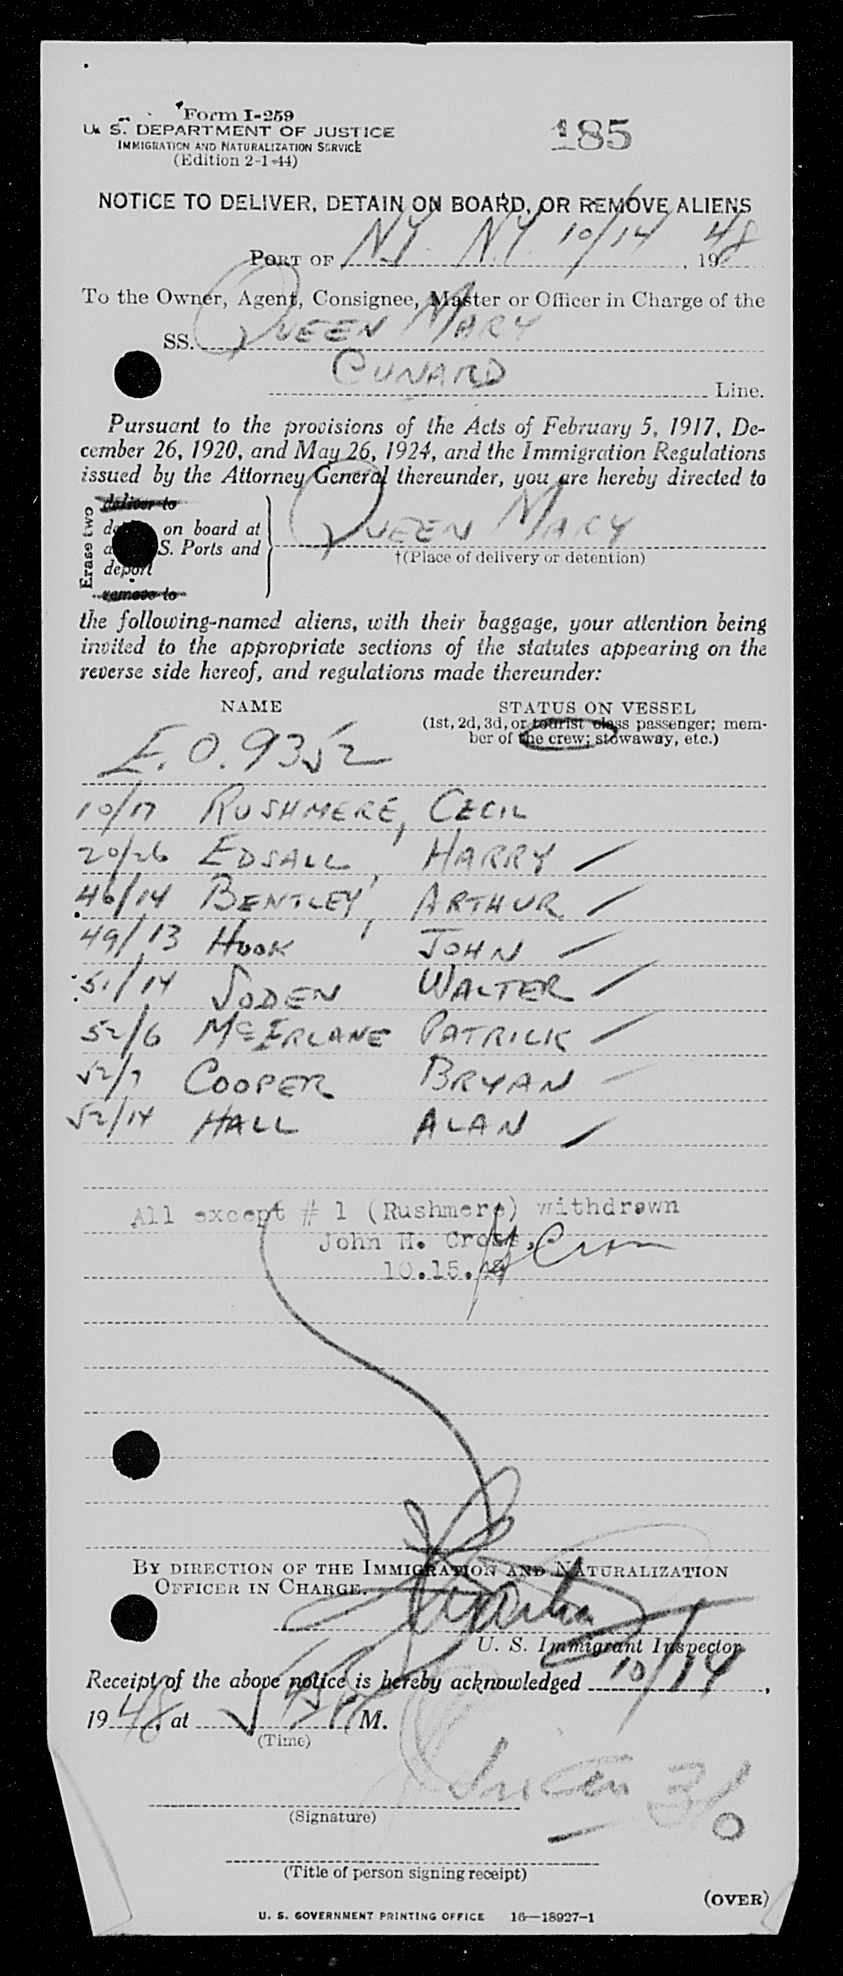 Form I-259
U. S. DEPARTMENT OF JUSTICE
IMMIGRATION AND NATURALIZATION SERVICE
(Edition 2-1-44)
185
NOTICE TO DELIVER, DETAIN ON BOARD, OR REMOVE ALIENS
PORT OF NY. N.Y. 10/14, 1948
To the Owner, Agent, Consignee, Master or Officer in Charge of the
SS. QUEEN MARY
CUNARD Line.
Pursuant to the provisions of the Acts of February 5, 1917, De-
cember 26, 1920, and May 26, 1924, and the Immigration Regulations
issued by the Attorney General thereunder, you are hereby directed to
Erase two
deliver to
on board at
S. Ports and
deport
remove to
QUEEN MARY
†(Place of delivery or detention)
the following-named aliens, with their baggage, your attention being
invited to the appropriate sections of the statutes appearing on the
reverse side hereof, and regulations made thereunder:
NAME STATUS ON VESSEL
(1st, 2d, 3d, or tourist class passenger; mem-
ber of the crew; stowaway, etc.)
E.O. 9352
10/17 RUSHMERE, CECIL
20/26 EDSALL, HARRY
46/14 BENTLEY, ARTHUR
49/13 HOOK, JOHN
51/14 SODEN WALTER
52/6 McERLANE PATRICK
52/7 COOPER BRYAN
52/14 HALL ALAN
All except # 1 (Rushmere) withdrawn
John H. Cross,
10.15.48
BY DIRECTION OF THE IMMIGRATION AND NATURALIZATION
OFFICER IN CHARGE.
U. S. Immigrant Inspector
Receipt of the above notice is hereby acknowledged 10/14,
1948, at M.
(Time)
(Signature)
(Title of person signing receipt)
(OVER)
U. S. GOVERNMENT PRINTING OFFICE 16—18927-1